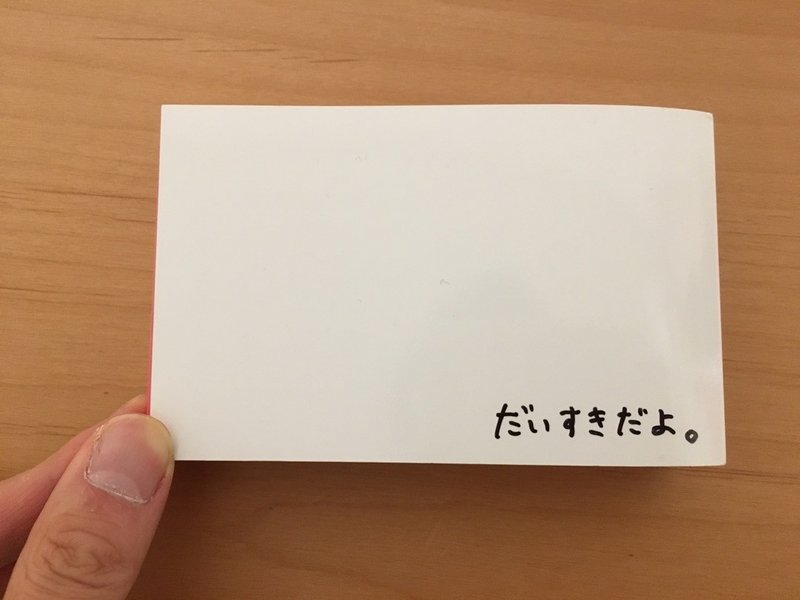 だいすきだよ。